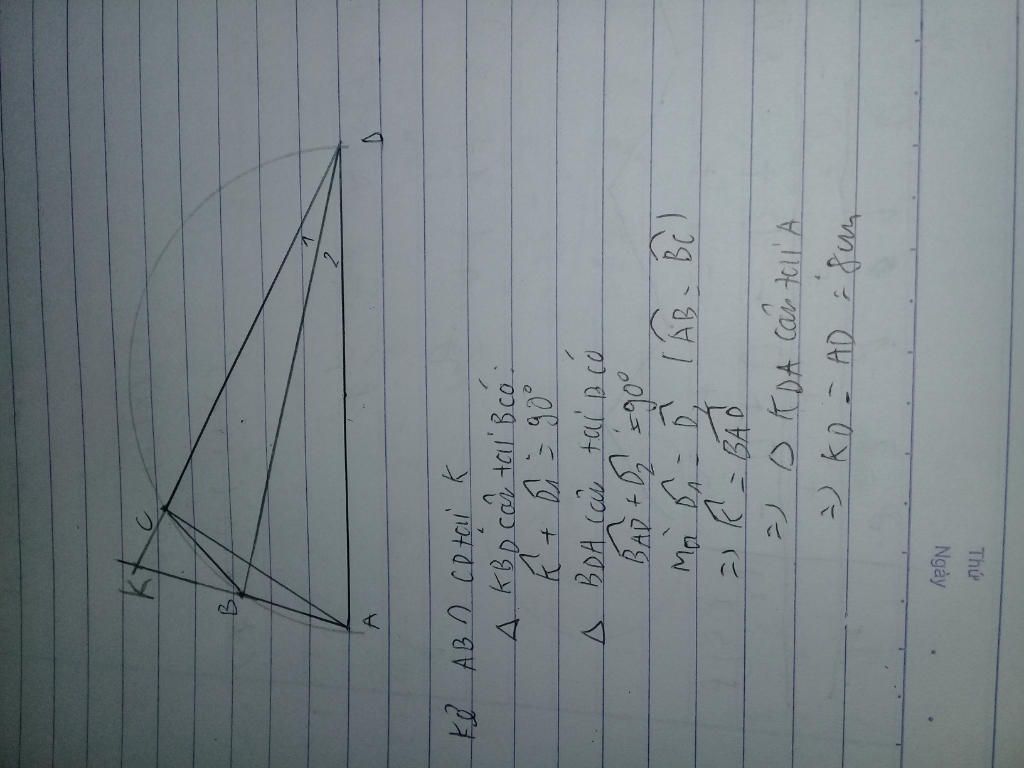 K
C
B
A
D
1
2
KB AB ∩ CD tại K
Δ KBD cân tại B có:
K̂ + D̂₁ = 90°
Δ BDA cân tại D có
BAD̂ + D̂₂ = 90°
Mà D̂₁ = D̂₂ (AB̂ = BĈ)
=> K̂ = BAD̂
=> Δ KDA cân tại A
=> KD = AD = 8cm
Thứ
Ngày